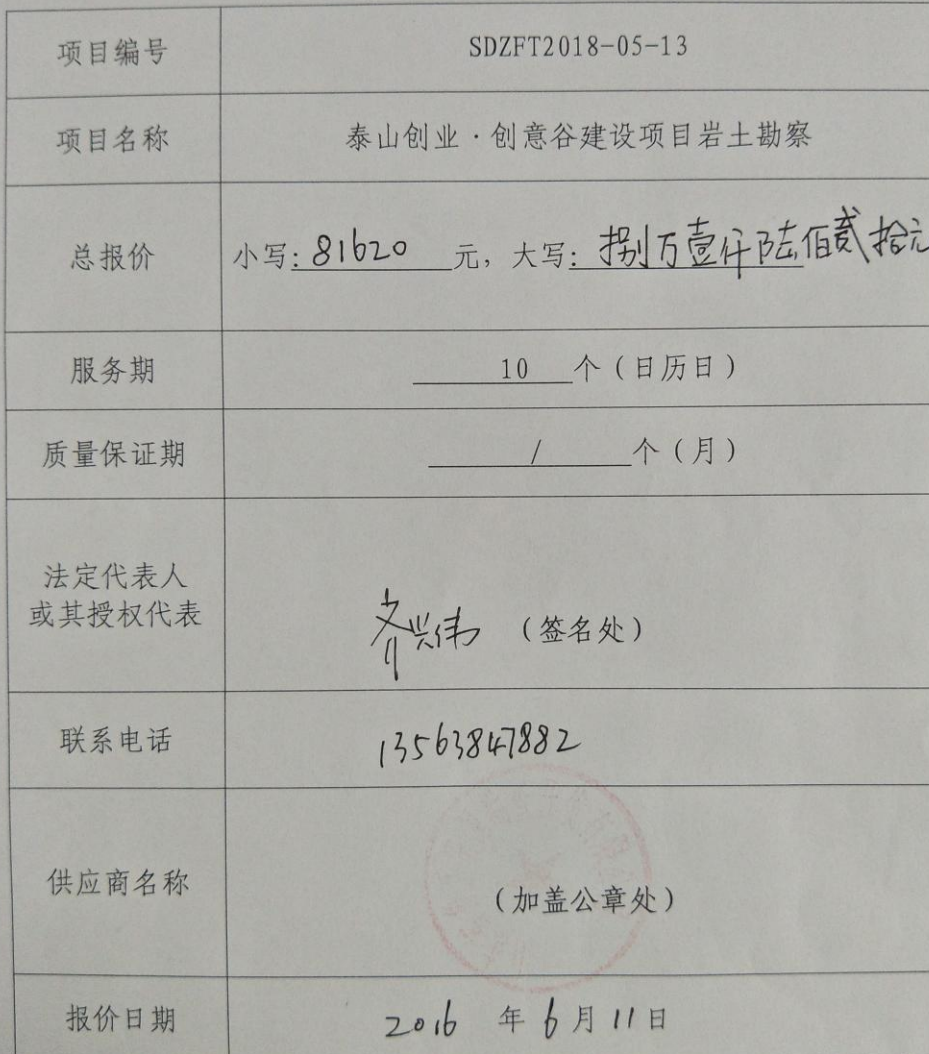 项目编号 SDZFT2018-05-13
项目名称 泰山创业·创意谷建设项目岩土勘察
总报价 小写:81620 元, 大写:捌万壹仟陆佰贰拾元
服务期 10 个(日历日)
质量保证期 / 个(月)
法定代表人
或其授权代表 齐兴伟 (签名处)
联系电话 13563847882
供应商名称 (加盖公章处)
报价日期 2016 年 6 月 11 日